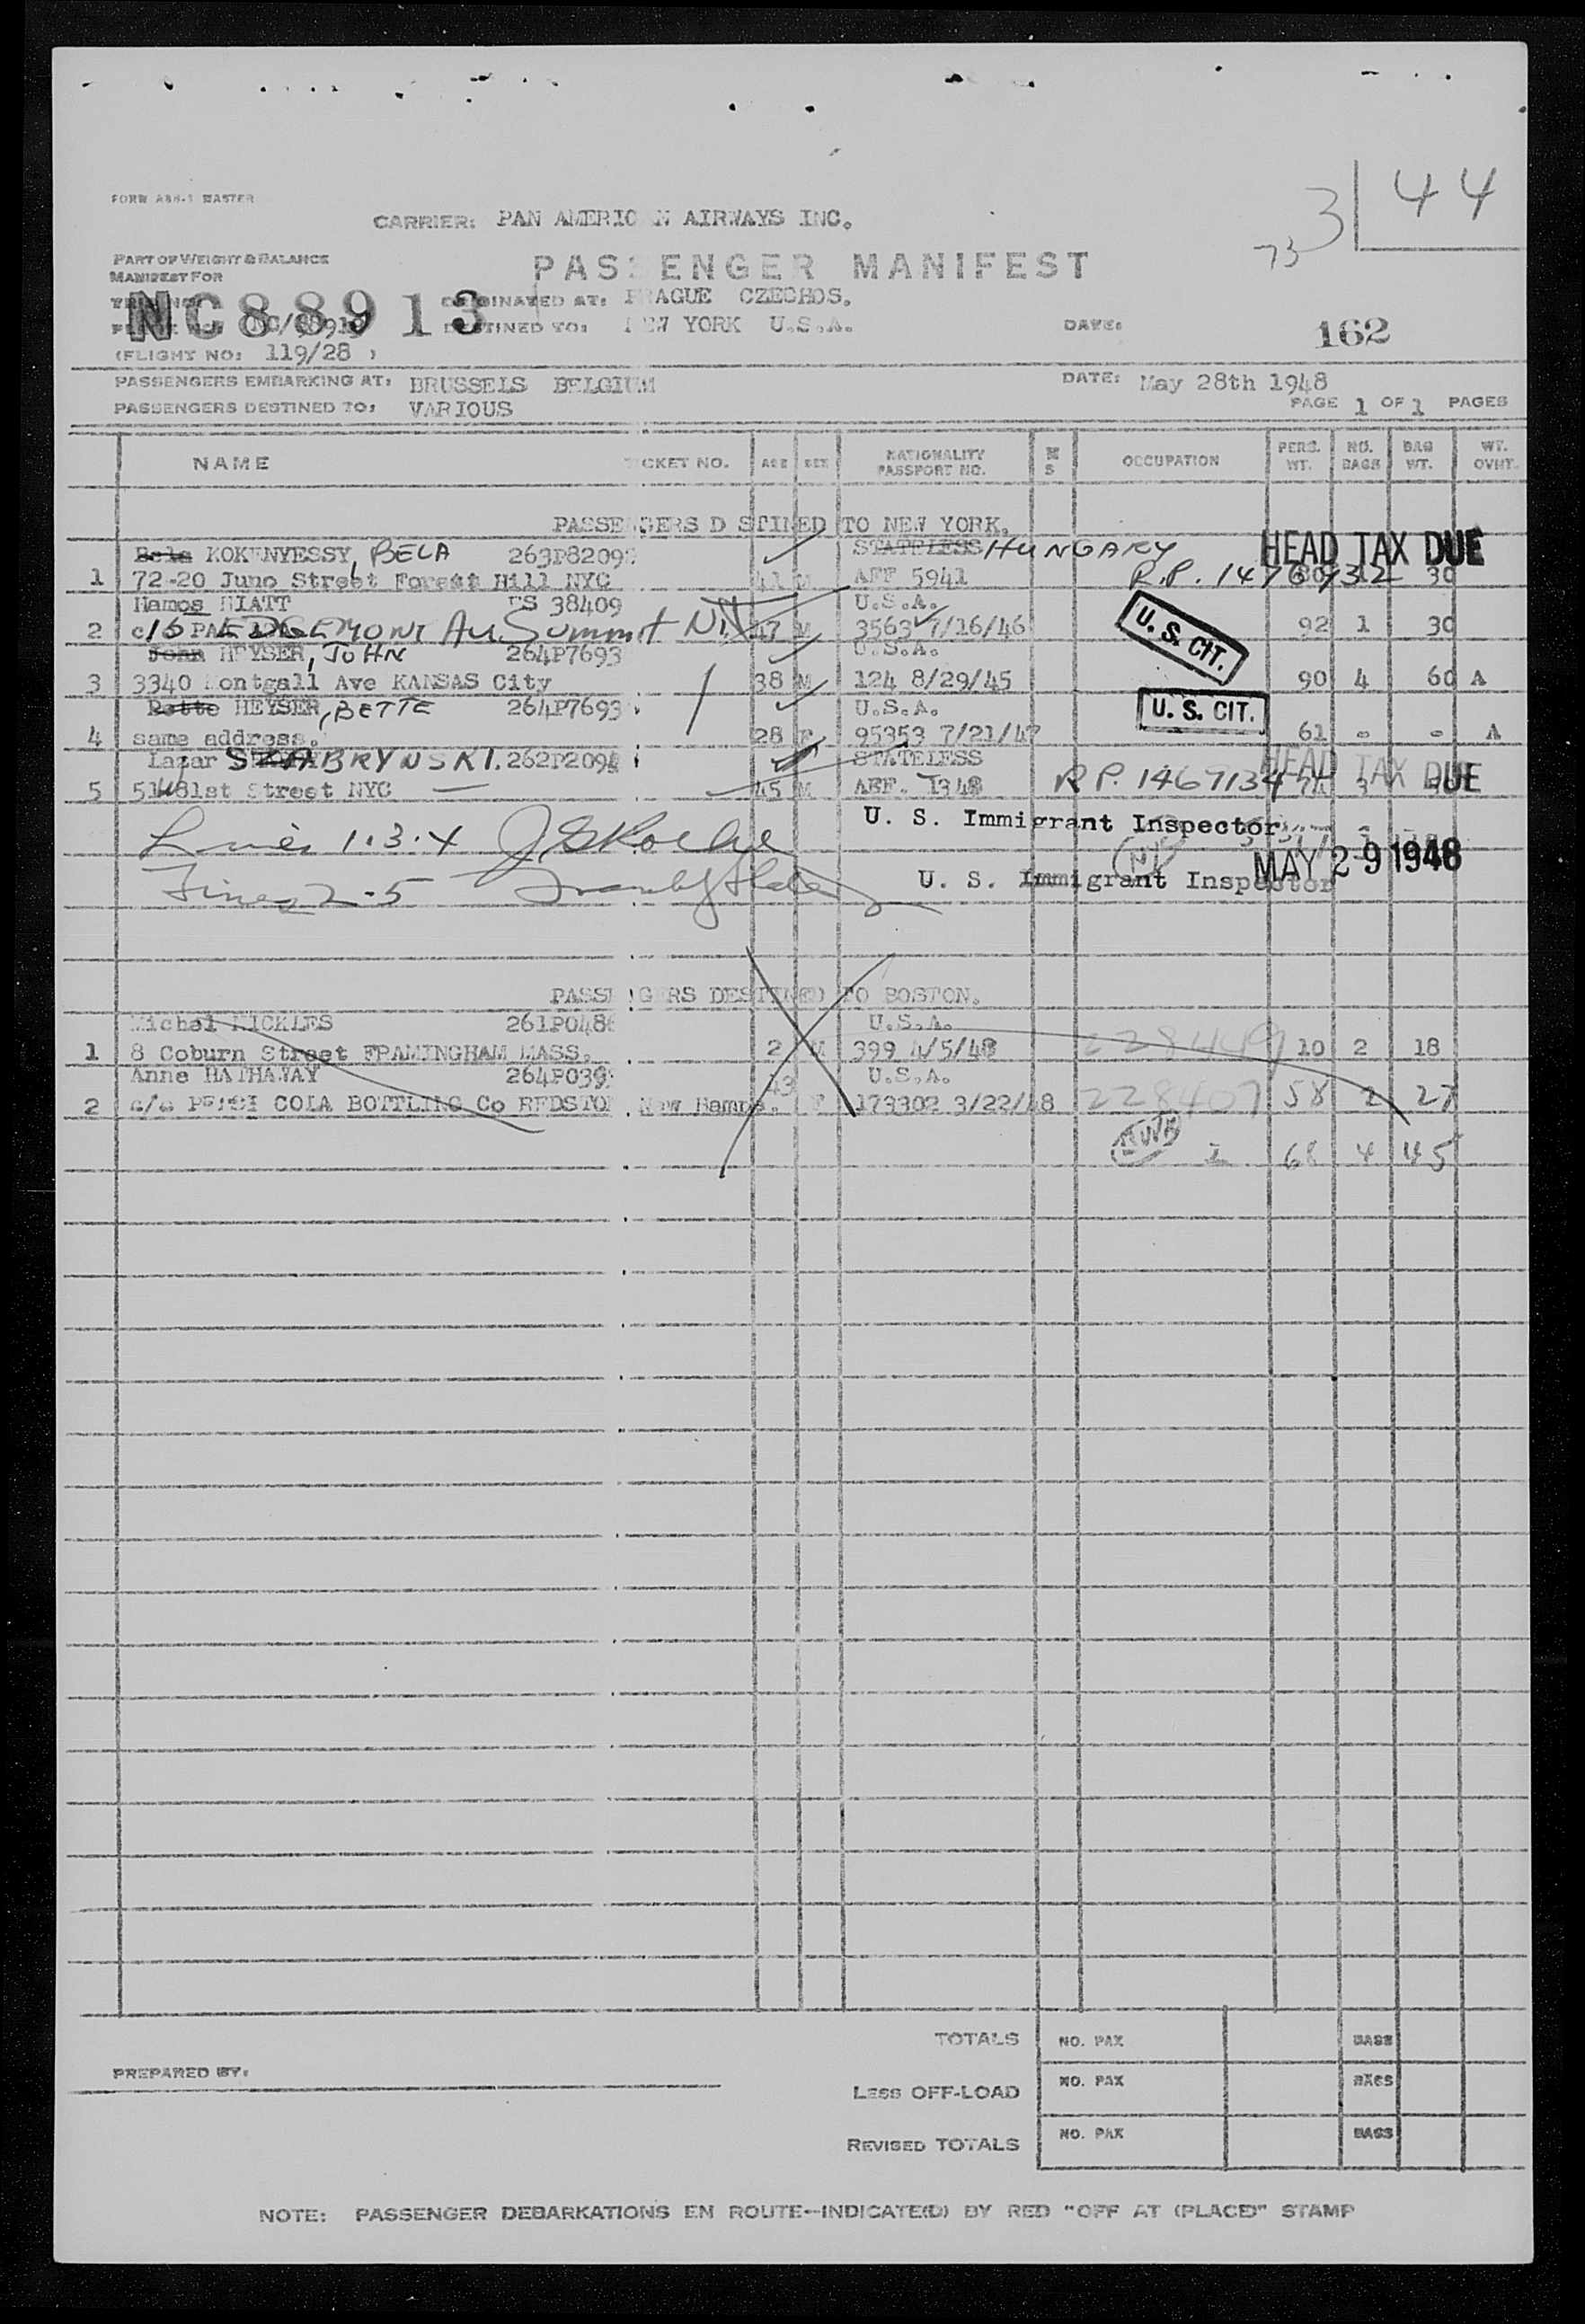 FORM ABH-1 MASTER
3 44
73
CARRIER: PAN AMERIC N AIRWAYS INC.
PART OF WEIGHT & BALANCE
MANIFEST FOR
PASSENGER MANIFEST
NC88913
ORIGINATED AT: PRAGUE CZECHOS.
DESTINED TO: NEW YORK U.S.A.
DATE:
162
(FLIGHT NO: 119/28 )
PASSENGERS EMBARKING AT: BRUSSELS BELGIUM
DATE: May 28th 1948
PASSENGERS DESTINED TO: VARIOUS
PAGE 1 OF 1 PAGES
NAME TICKET NO. AGE SEX NATIONALITY PASSPORT NO. M S OCCUPATION PERS. WT. NO. BAGS BAG WT. WT. OVHT.
PASSENGERS D STINED TO NEW YORK.
Bela KOKENYESSY, BELA 263P8209 STATELESS HUNGARY HEAD TAX DUE
1 72-20 Juno Street Forest Hill NYC 41 M AFF 5941 R.P. 1476 1 30
Hamos HIATT US 38409 U.S.A.
2 EDGEMONT Av Summit NJ 47 M 3563 7/16/46 U. S. CIT. 92 1 30
John HEYSER, JOHN 264P7693 U.S.A.
3 3340 Montgall Ave KANSAS City 38 M 124 8/29/45 90 4 60 A
Bette HEYSER, BETTE 264P7693 U.S.A. U. S. CIT.
4 same address. 28 F 95353 7/21/47 61 - - A
Lazar SZABRYNSKI. 262P209 STATELESS HEAD TAX DUE
5 81st Street NYC 45 M AFF. 1348 R.P. 1467134
U. S. Immigrant Inspector
Lines 1.3.4
MAY 29 1948
U. S. Immigrant Inspector
Lines 2-5
PASSENGERS DESTINED TO BOSTON.
Michal NICKLES 261P048 U.S.A.
1 8 Coburn Street FRAMINGHAM MASS. 2 M 399 4/5/48 228449 10 2 18
Anne HATHAWAY 264P039 U.S.A.
2 c/o PEPSI COLA BOTTLING Co REDSTON New Hamps. 43 F 173302 3/22/48 228407 58 2 27
68 4 45
TOTALS NO. PAX BAGS
PREPARED BY:
LESS OFF-LOAD NO. PAX BAGS
REVISED TOTALS NO. PAX BAGS
NOTE: PASSENGER DEBARKATIONS EN ROUTE--INDICATE(D) BY RED "OFF AT (PLACE)" STAMP